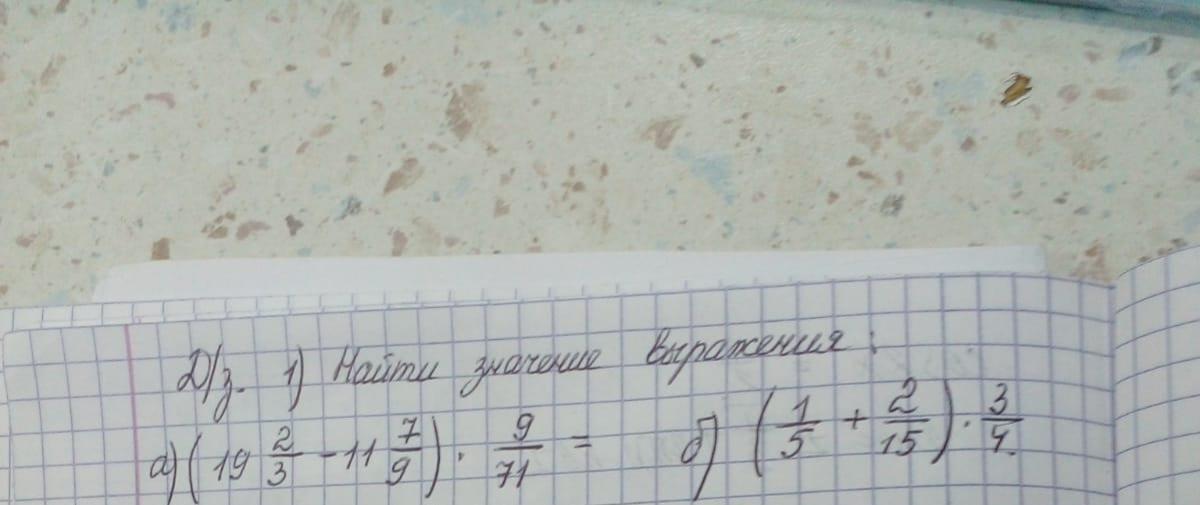 Д/з. 1) Найти значение выражения:
а) (19 2/3 - 11 7/9) · 9/71 = б) (1/5 + 2/15) · 3/4